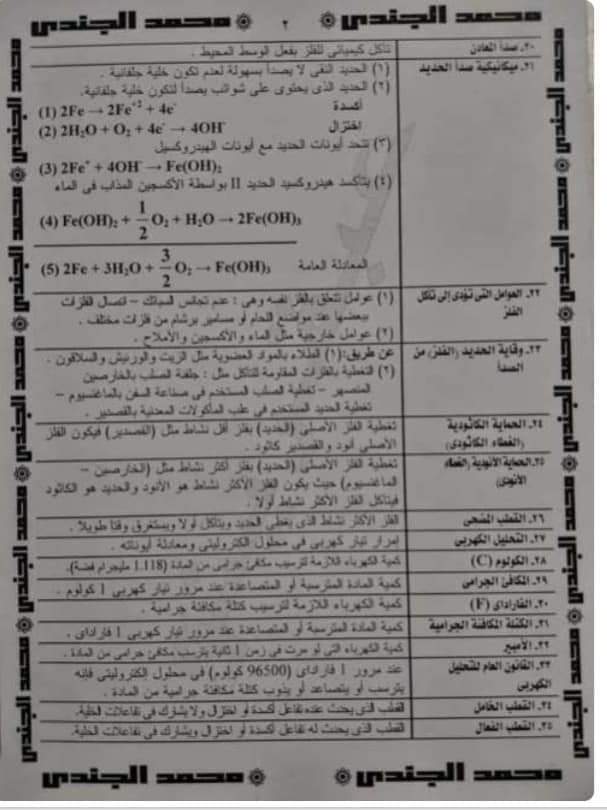 محمد الجندى ۞ ٢ ۞ محمد الجندى
٢٠. صدأ المعادن
تآكل كيميائى للفلز بفعل الوسط المحيط .
٢١. ميكانيكية صدأ الحديد
(١) الحديد النقى لا يصدأ بسهولة لعدم تكون خلية جلفانية .
(٢) الحديد الذى يحتوى على شوائب يصدأ لتكون خلية جلفانية.
(1) 2Fe → 2Fe⁺² + 4e⁻ أكسدة
(2) 2H₂O + O₂ + 4e⁻ → 4OH⁻ اختزال
(٣) تتحد أيونات الحديد مع أيونات الهيدروكسيل
(3) 2Fe⁺ + 4OH⁻ → Fe(OH)₂
(٤) يتأكسد هيدروكسيد الحديد II بواسطة الأكسجين المذاب فى الماء
(4) Fe(OH)₂ + 1/2 O₂ + H₂O → 2Fe(OH)₃
(5) 2Fe + 3H₂O + 3/2 O₂ → Fe(OH)₃ المعادلة العامة
٢٢. العوامل التى تؤدى إلى تآكل
الفلز
(١) عوامل تتعلق بالفلز نفسه وهى : عدم تجانس السبائك – اتصال الفلزات
ببعضها عند مواضع اللحام أو مسامير برشام من فلزات مختلف .
(٢) عوامل خارجية مثل الماء والأكسجين والأملاح .
٢٣. وقاية الحديد (الفلز) من
الصدأ
عن طريق:(١) الطلاء بالمواد العضوية مثل الزيت والورنيش والسلاقون .
(٢) التغطية بالفلزات المقاومة للتآكل مثل : جلفنة الصلب بالخارصين
المنصهر – تغطية الصلب المستخدم فى صناعة السفن بالماغنسيوم –
تغطية الحديد المستخدم فى علب المأكولات المعدنية بالقصدير .
٢٤. الحماية الكاثودية
(الغطاء الكاثودى)
تغطية الفلز الأصلى (الحديد) بفلز أقل نشاط مثل (القصدير) فيكون الفلز
الأصلى أنود والقصدير كاثود .
٢٥. الحماية الأنودية (الغطاء
الأنودى)
تغطية الفلز الأصلى (الحديد) بفلز أكثر نشاط مثل (الخارصين –
الماغنسيوم) حيث يكون الفلز الأكثر نشاط هو الأنود والحديد هو الكاثود
فيتآكل الفلز الأكثر نشاط أولا .
٢٦. القطب المضحى
الفلز الأكثر نشاط الذى يغطى الحديد ويتآكل أولا ويستغرق وقتا طويلا .
٢٧. التحليل الكهربى
إمرار تيار كهربى فى محلول الكتروليتى ومعادلة أيوناته .
٢٨. الكولوم (C)
كمية الكهرباء اللازمة لترسيب مكافئ جرامى من المادة (1.118 مليجرام فضة).
٢٩. المكافئ الجرامى
كمية المادة المترسبة أو المتصاعدة عند مرور تيار كهربى 1 كولوم .
٣٠. الفاراداى (F)
كمية الكهرباء اللازمة لترسيب كتلة مكافئة جرامية .
٣١. الكتلة المكافئة الجرامية
كمية المادة المترسبة أو المتصاعدة عند مرور تيار كهربى 1 فاراداى .
٣٢. الأمبير
كمية الكهرباء التى لو مرت فى زمن 1 ثانية يترسب مكافئ جرامى من المادة .
٣٣. القانون العام للتحليل
الكهربى
عند مرور 1 فاراداى (96500 كولوم) فى محلول إلكتروليتى فإنه
يترسب أو يتصاعد أو يذوب كتلة مكافئة جرامية من المادة .
٣٤. القطب الخامل
القطب الذى يحدث عنده تفاعل أكسدة أو اختزال ولا يشارك فى تفاعلات الخلية.
٣٥. القطب الفعال
القطب الذى يحدث له تفاعل أكسدة أو اختزال ويشارك فى تفاعلات الخلية.
محمد الجندى ۞ ۞ محمد الجندى